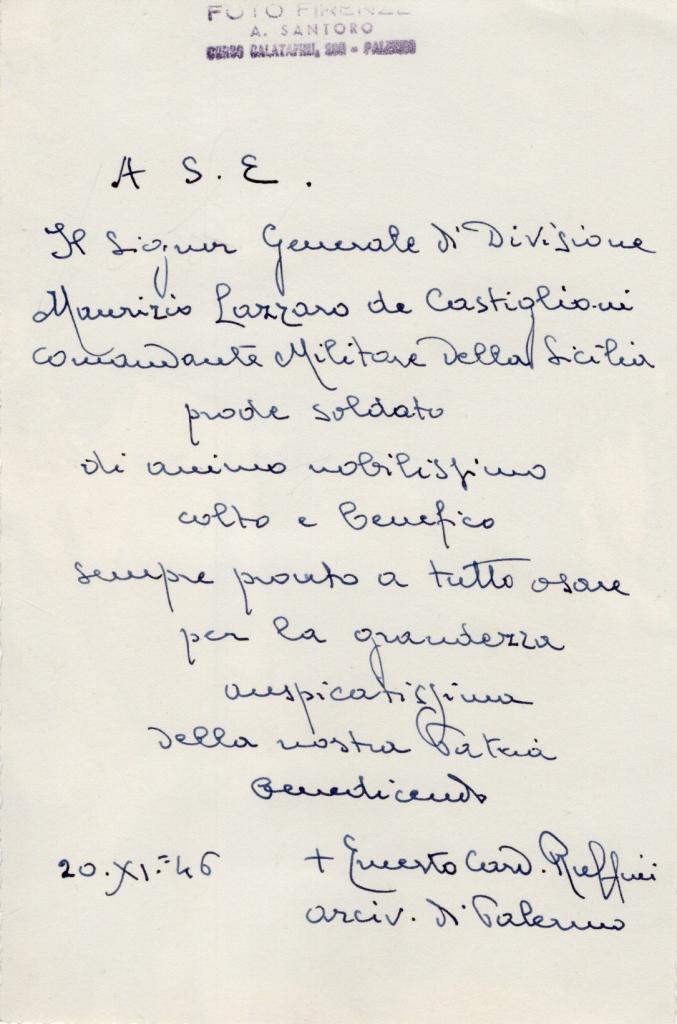 FOTO FIRENZE
A. SANTORO
CORSO CALATAFIMI, - PALERMO
A S. E.
Il Signor Generale di Divisione
Maurizio Lazzaro de Castiglioni
Comandante Militare della Sicilia
prode soldato
di animo nobilissimo
colto e benefico
sempre pronto a tutto osare
per la grandezza
auspicatissima
della nostra Patria
Benedicendo
20.XI.-46
+ Ernesto Card. Ruffini
arciv. di Palermo